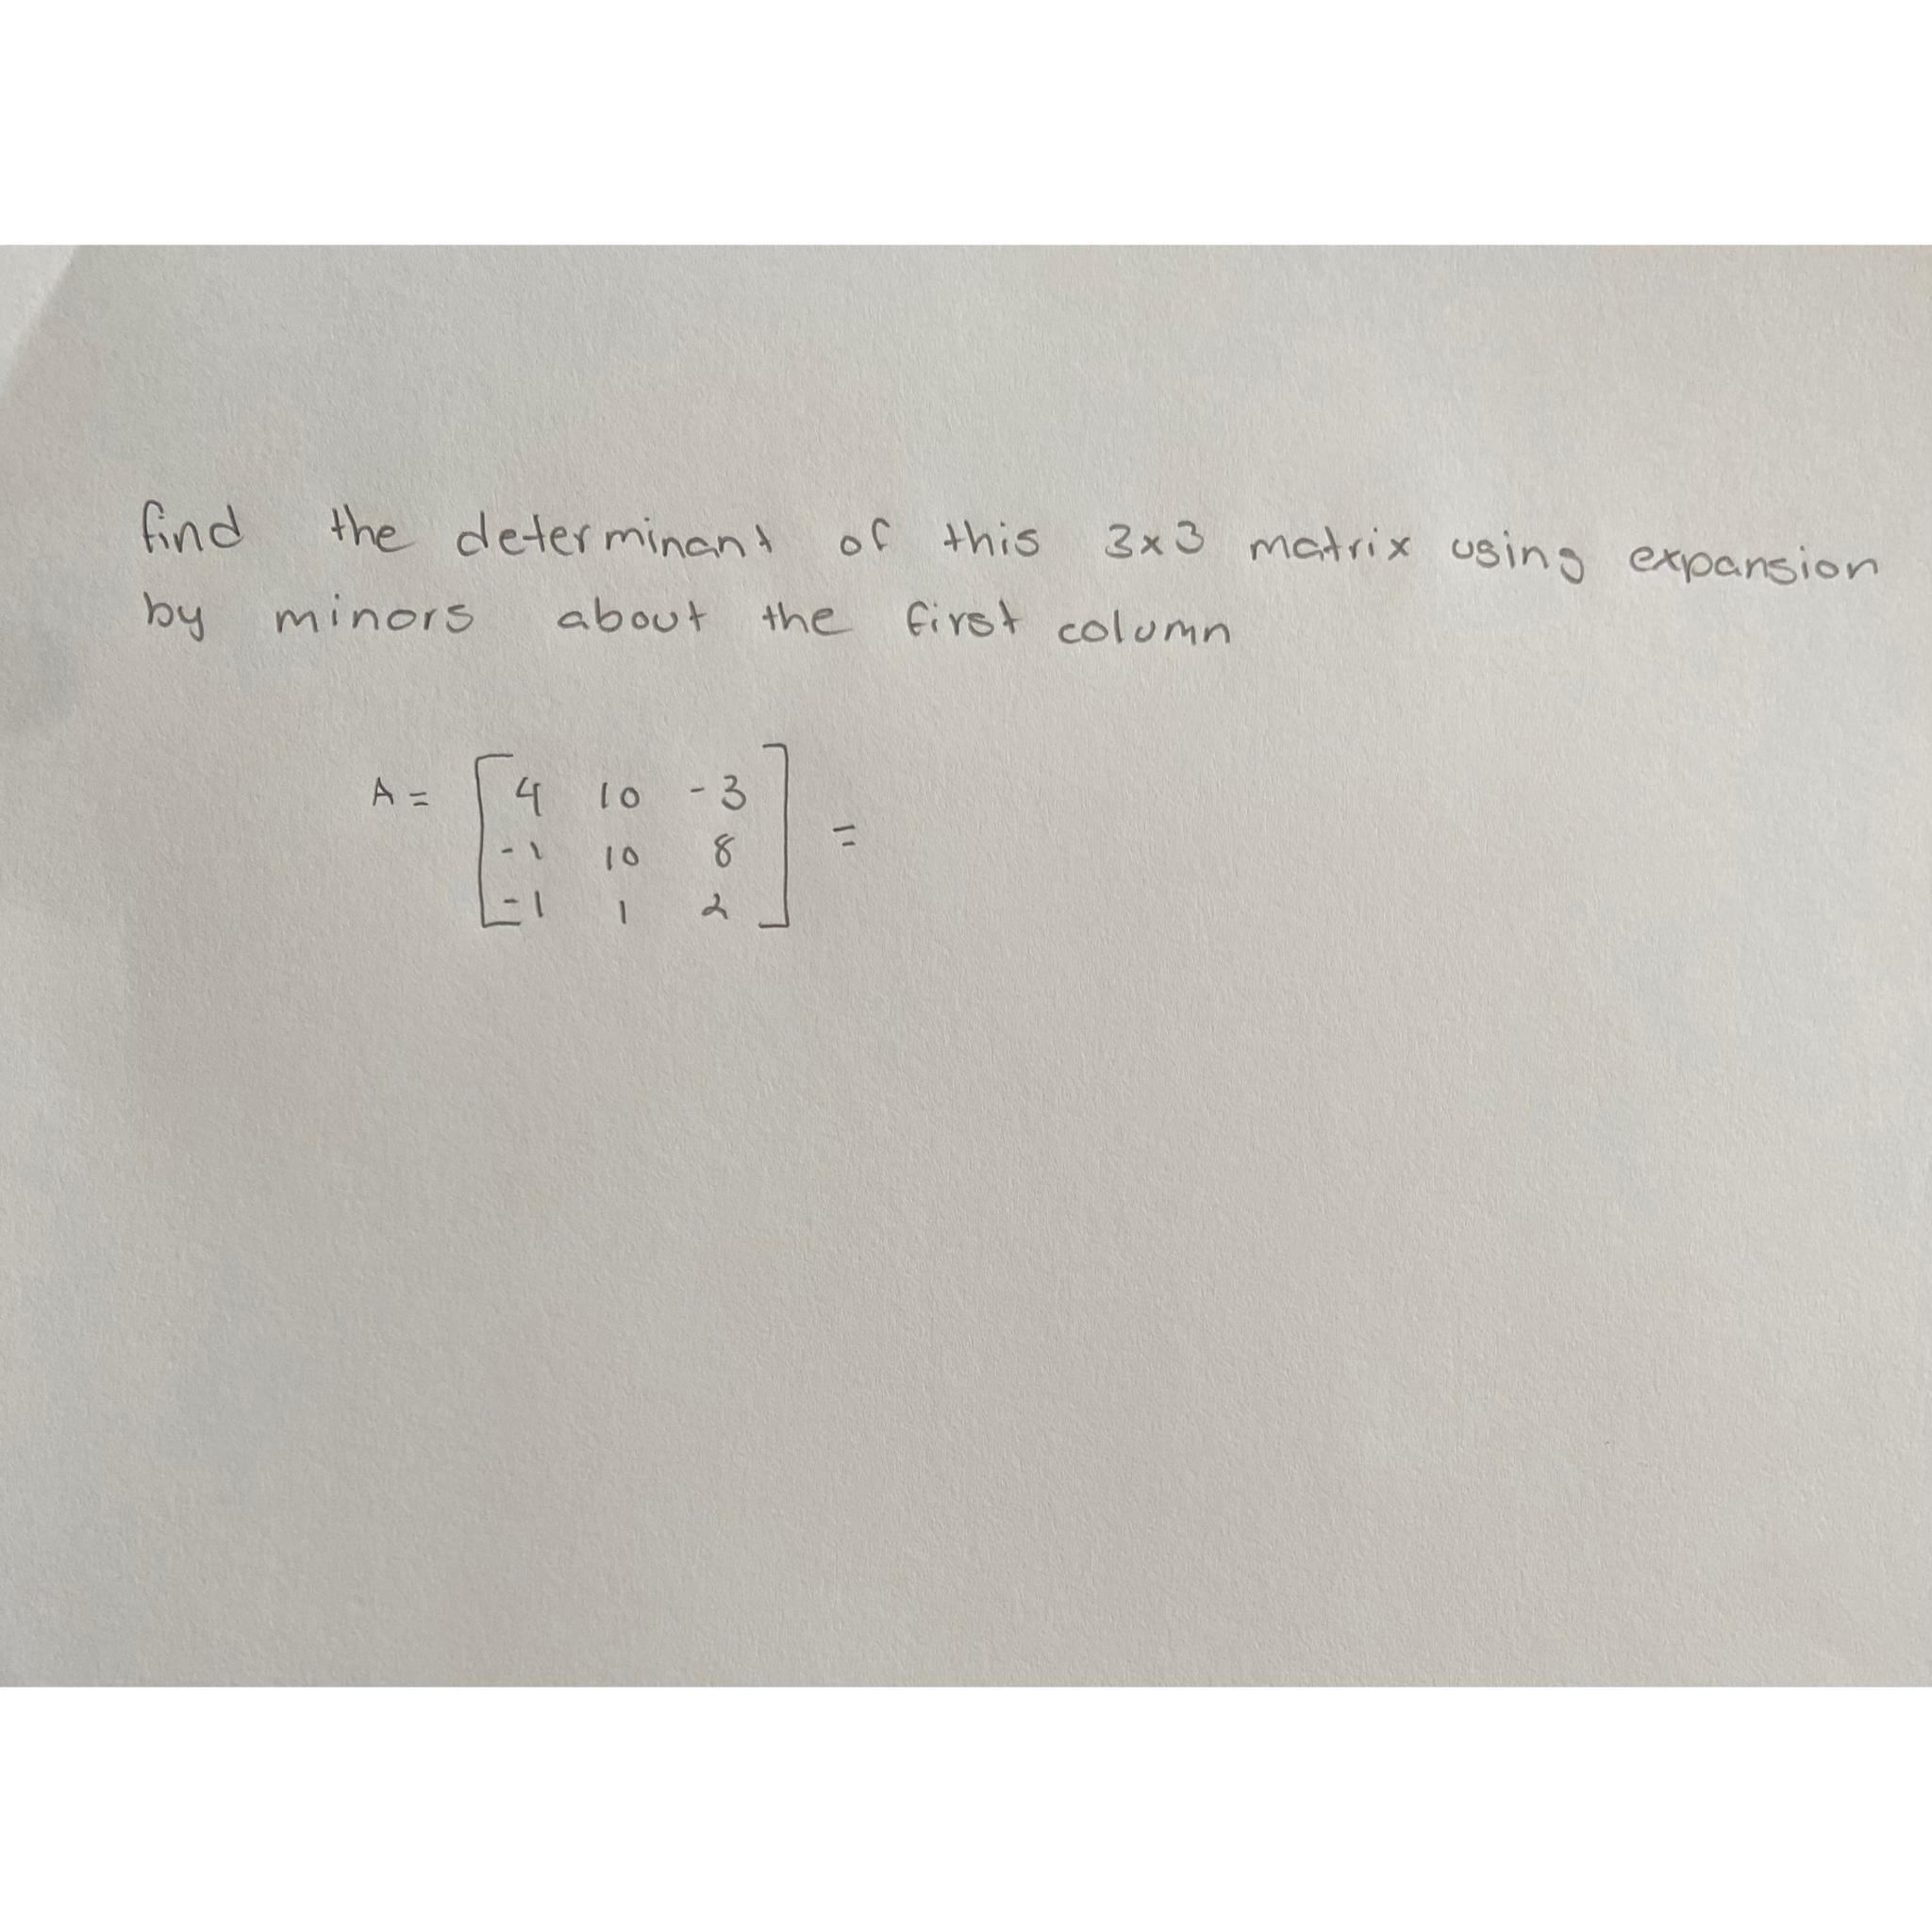 find the determinant of this 3x3 matrix using expansion
by minors about the first column
A = [ 4 10 -3
-1 10 8
-1 1 2 ] =